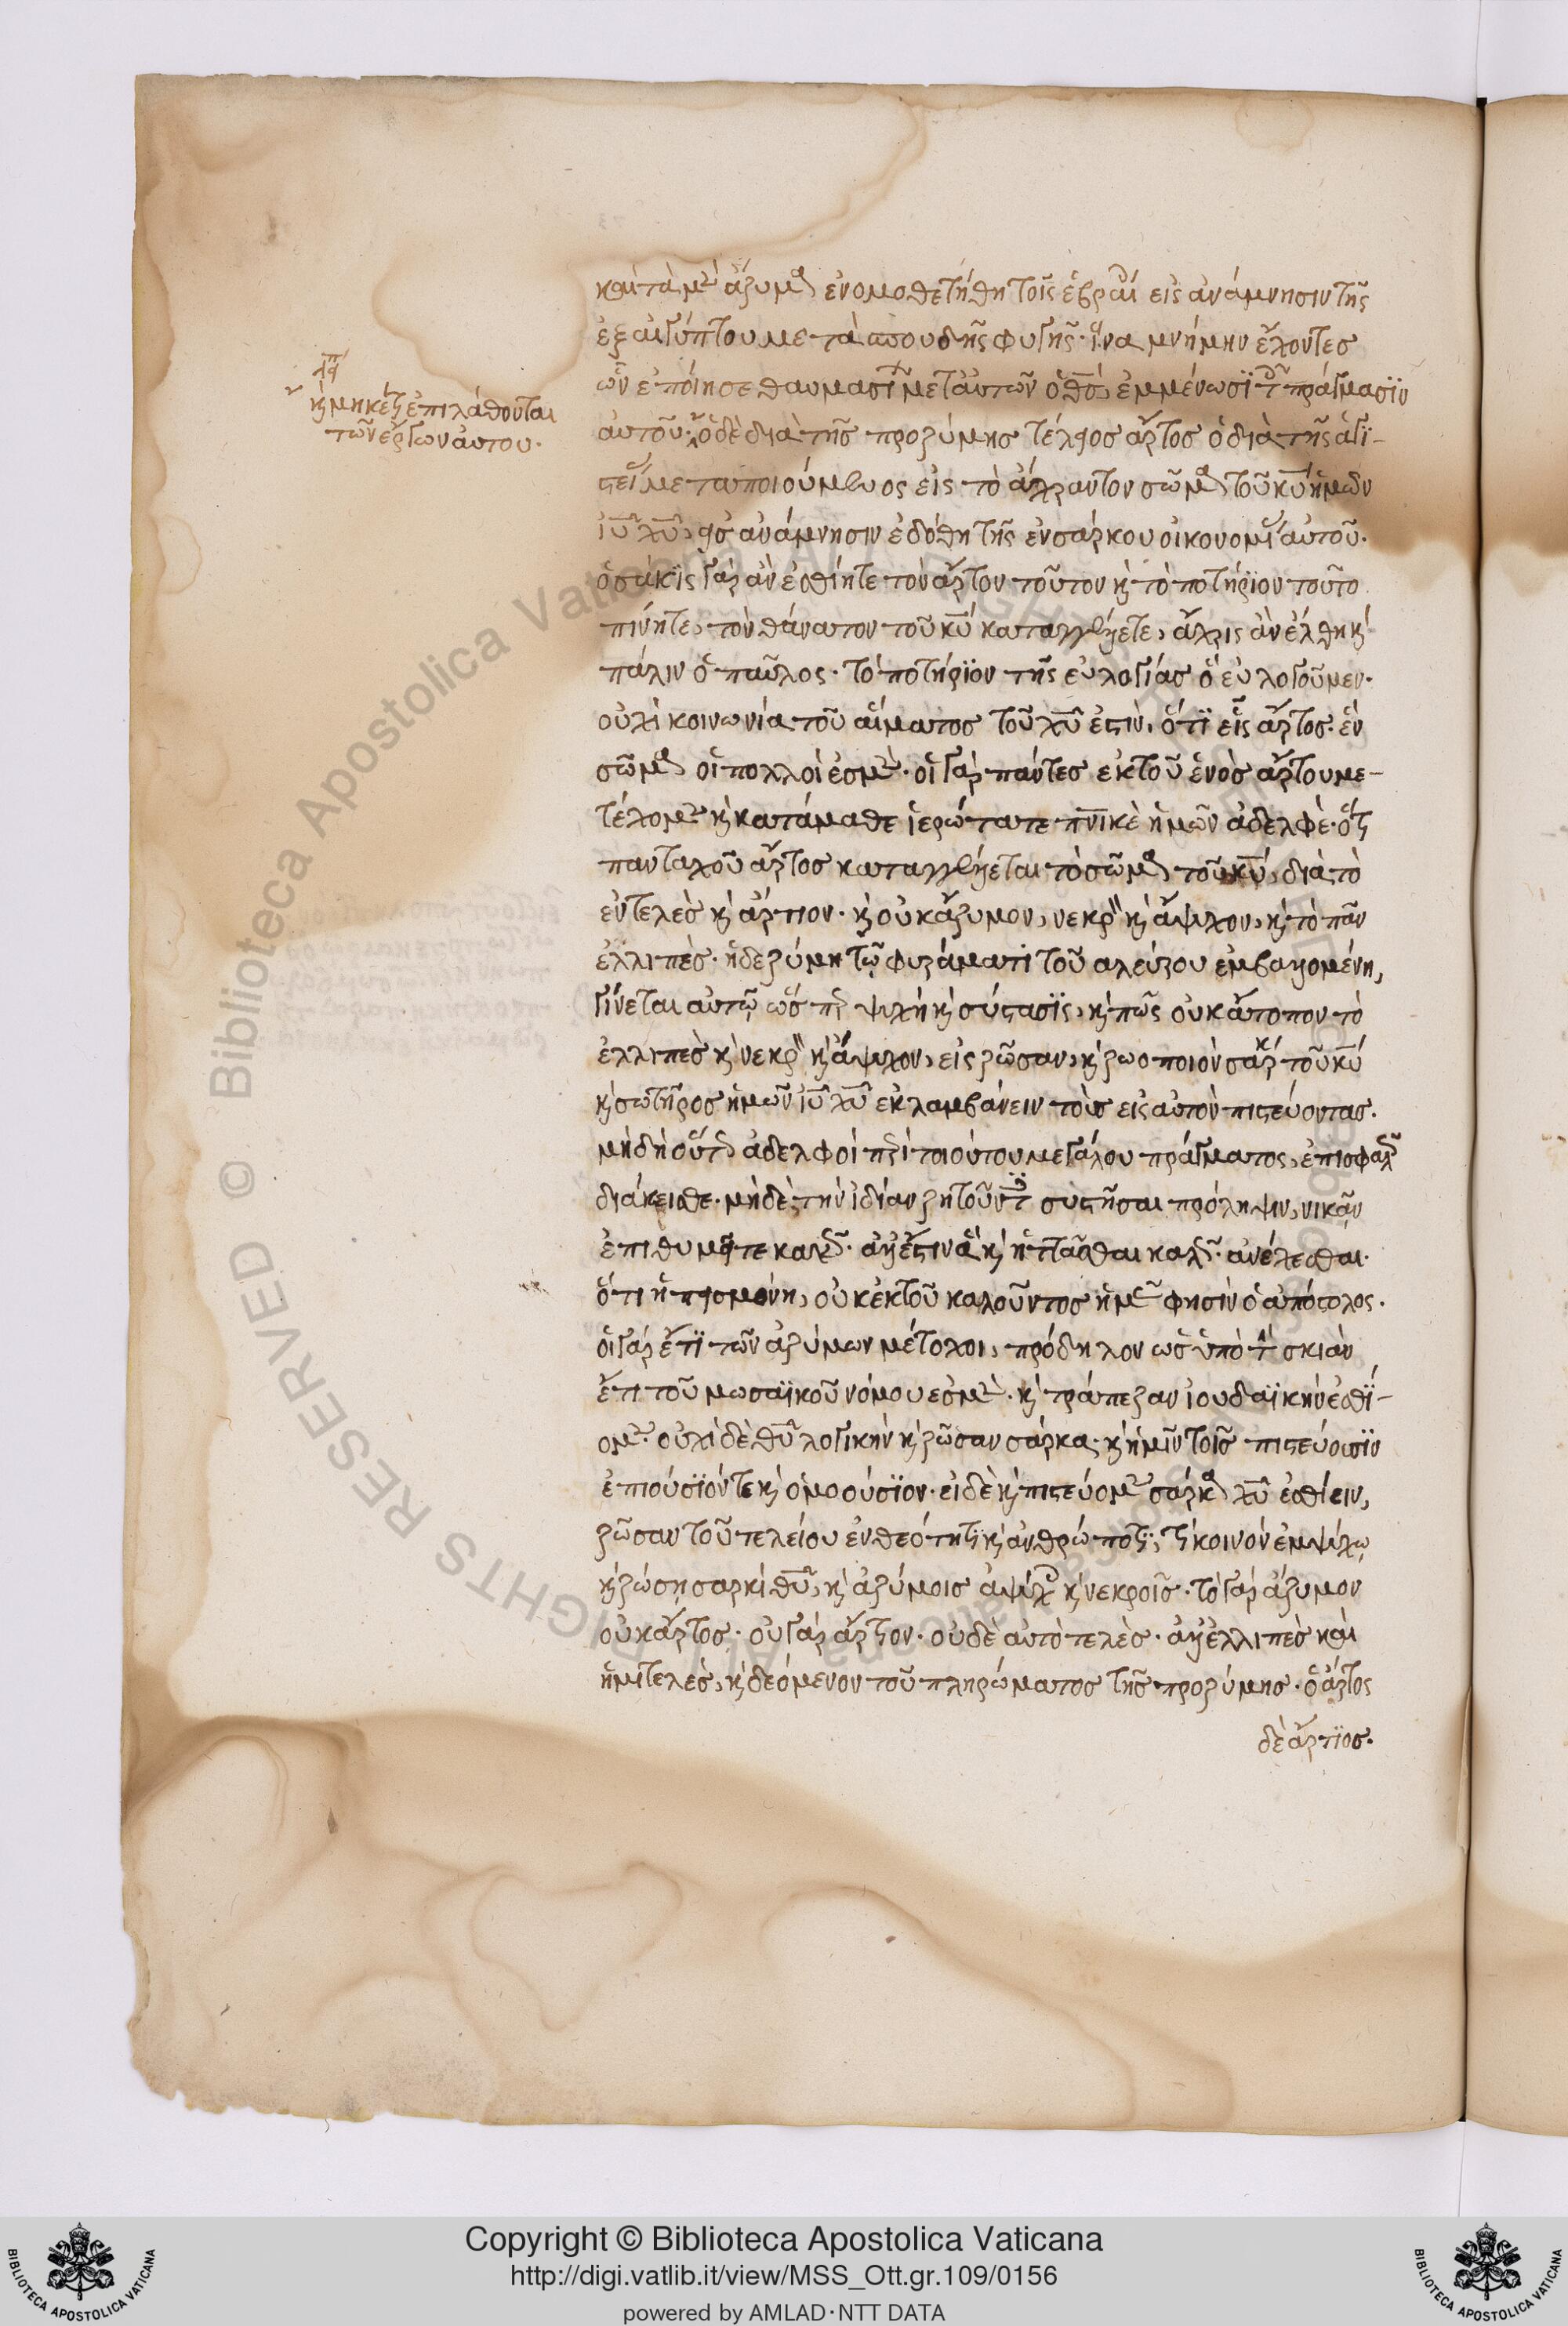 καὶ τὰ μὲν ἄζυμα ἐνομοθετήθη τοῖς ἑβραίοις εἰς ἀνάμνησιν τῆς
ἐξ αἰγύπτου μετὰ σπουδῆς φυγῆς· ἵνα μνήμην ἔχοντες
ὧν ἐποίησε θαυμασίων μετ' αὐτῶν ὁ θς, ἐμμένωσϊ τοῖς πράγμασϊν
αὐτοῦ· ὁ δὲ διὰ τῆς προζύμης τέλειος ἄρτος ὁ διὰ τῆς ἁγϊ-
στείας μεταποιούμενος εἰς τὸ ἄχραντον σῶμα τοῦ κυ ἡμῶν
ιυ χυ, εἰς ἀνάμνησιν ἐδόθη τῆς ἐνσάρκου οἰκονομίας αὐτοῦ·
ὁσάκϊς γὰρ ἂν ἐσθίητε τὸν ἄρτον τοῦτον κὶ τὸ ποτήρϊον τοῦτο
πίνητε, τὸν θάνατον τοῦ κυ καταγγέλλετε, ἄχρις ἂν ἔλθη κὶ
πάλιν ὁ παῦλος· τὸ ποτήρϊον τῆς εὐλογίας ὃ εὐλογοῦμεν·
οὐχὶ κοινωνία τοῦ αἵματος τοῦ χυ ἐστὶν, ὅτϊ εἷς ἄρτος· ἓν
σῶμα οἱ πολλοί ἐσμὲν· οἱ γὰρ πάντες ἐκ τοῦ ἑνὸς ἄρτου με-
τέχομεν κὶ κατάμαθε ἱερώτατε πνικὲ ἡμῶν ἀδελφὲ· ὅτι
πανταχοῦ ἄρτος καταγγέλλεται τὸ σῶμα τοῦ κυ, διὰ τὸ
ἐντελὲς κὶ ἄρτιον· κὶ οὐκ ἄζυμον, νεκρὸν κὶ ἄψυχον, κὶ τὸ πᾶν
ἐλλιπὲς· ἡ δὲ ζύμη τῷ φυράματι τοῦ αλεύρου ἐμβαλλομένη,
γίνεται αὐτῷ ὥσπερ ψυχὴ κὶ σύστασϊς, κὶ πῶς οὐκ ἄτοπον τὸ
ἐλλιπὲς κὶ νεκρὸν κὶ ἄψυχον, εἰς ζῶσαν, κὶ ζωοποιὸν σάρκα τοῦ κυ
κὶ σωτῆρος ἡμῶν ιυ χυ ἐκλαμβάνειν τοὺς εἰς αὐτὸν πιστεύοντας·
μὴ δὴ οὕτως ἀδελφοὶ περὶ τοιούτου μεγάλου πράγματος, ἐπισφαλῶς
διάκεισθε· μὴ δὲ τὴν ἰδίαν ζητοῦντες συστῆσαι πρόληψιν, νικᾶν
ἐπιθυμεῖτε κακῶς· ἀλλ' ἔστιν ἃ κὶ ἡττᾶσθαι καλῶς ἀνέλεσθαι·
ὅτι ἡ πεισμονὴ, οὐκ ἐκ τοῦ καλοῦντος ἡμᾶς φησὶν ὁ ἀπόστολος·
οἱ γὰρ ἔτϊ τῶν ἀζύμων μέτοχοι, πρόδηλον ὡς ὑπὸ τὴν σκιὰν
ἔτι τοῦ μωσαϊκοῦ νόμου ἐσμὲν· κὶ τράπεζαν ἰουδαϊκὴν ἐσθϊ-
ομεν· οὐχὶ δὲ θυ λογικὴν κὶ ζῶσαν σάρκα, κὶ ἡμῖν τοῖς πιστεύσασϊν
ἐπιούσϊόν τε κὶ ὁμοούσϊον· εἰ δὲ κὶ πιστεύομεν σάρκα χυ ἐσθίειν,
ζῶσαν τοῦ τελείου ἐν θεότητϊ κὶ ἀνθρωπότητϊ, τί κοινὸν ἐμψύχῳ
κὶ ζώσῃ σαρκὶ θυ, κὶ ἀζύμοις ἀψύχοις κὶ νεκροῖς· τὸ γὰρ ἄζυμον
οὐκ ἄρτος· οὐ γὰρ ἄρτιον· οὐδὲ αὐτοτελὲς· ἀλλ' ἐλλιπὲς καὶ
ἡμιτελὲς, κὶ δεόμενον τοῦ πληρώματος τῆς προζύμης· ὁ ἄρτος
δὲ ἄρτϊος·
κὶ μὴκέτι ἐπιλάθονται
τῶν ἔργων αὐτοῦ·
Copyright © Biblioteca Apostolica Vaticana
http://digi.vatlib.it/view/MSS_Ott.gr.109/0156
powered by AMLAD·NTT DATA
BIBLIOTECA APOSTOLICA VATICANA
BIBLIOTECA APOSTOLICA VATICANA